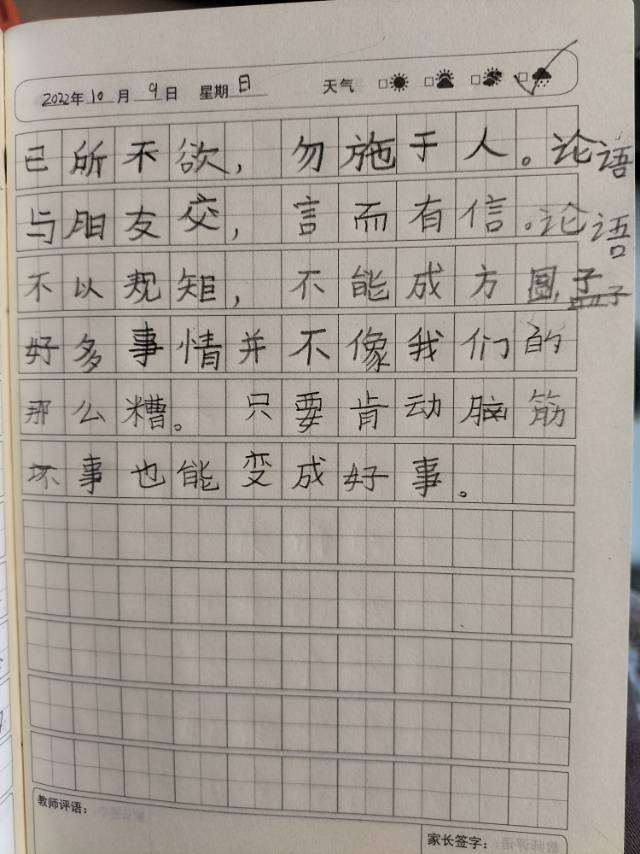 2022年10月9日 星期日 天气
己所不欲，勿施于人。论语
与朋友交，言而有信。论语
不以规矩，不能成方圆，孟子
好多事情并不像我们的
那么糟。只要肯动脑筋
坏事也能变成好事。
教师评语：
家长签字：